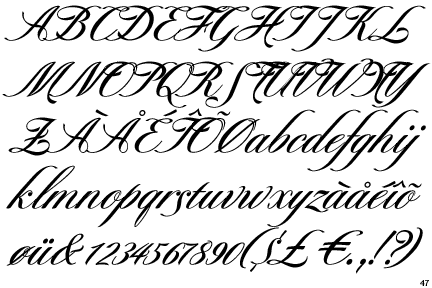 ABCDEFGHIJKL
MNOPQRSTUVWXY
ZÀÅÉÎÕØabcdefghij
klmnopqrstuvwxyzàåéîõ
øü&1234567890($£€.,!?)
47